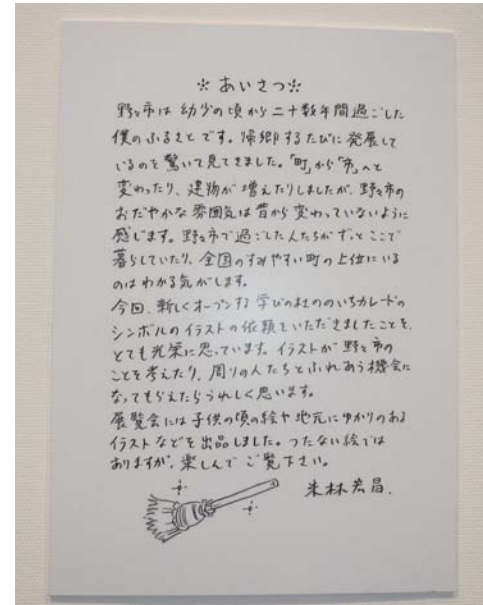 ※あいさつ※
野々市は 幼少の頃から二十数年間過ごした
僕のふるさとです。帰郷するたびに発展して
いるのを驚いて見てきました。「町」から「市」へと
変わったり、建物が増えたりしましたが、野々市の
おだやかな雰囲気は昔から変わっていないように
感じます。野々市で過ごした人たちがずっとここで
暮らしていたり、全国のすみやすい町の上位にいる
のはわかる気がします。
今回、新しくオープンする学びの杜ののいちカレードの
シンボルのイラストの依頼をいただきましたことを、
とても光栄に思っています。イラストが野々市の
ことを考えたり、周りの人たちとふれあう機会に
なってもらえたらうれしく思います。
展覧会には子供の頃の絵や地元にゆかりのある
イラストなどを出品しました。つたない絵では
ありますが、楽しんでご覧下さい。
米林宏昌.